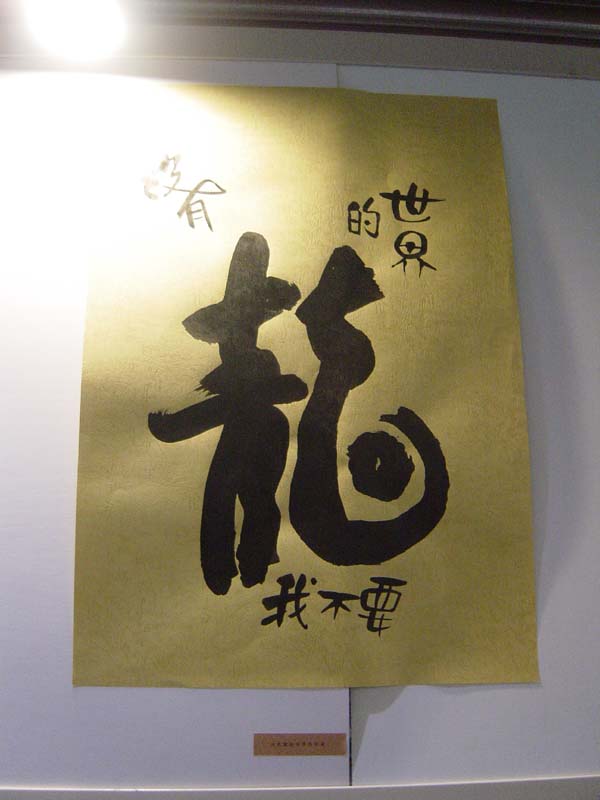 沒有
龍
的
世界
我不要